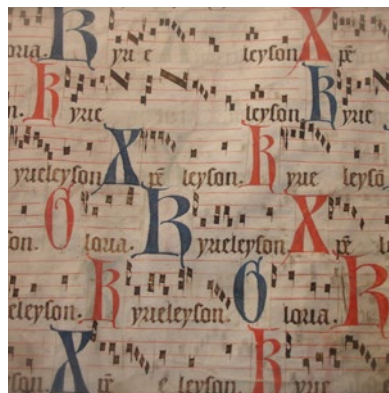 oria. K yri e leyson X pē
n. K yrie leyson. K yrie
yrieleyson X pē leyson. K yrie leysō
on. G loria. K yrieleyson X pē l
eleyson. K yrieleyson. G loria. K
son. X pē e leyson. K yrie